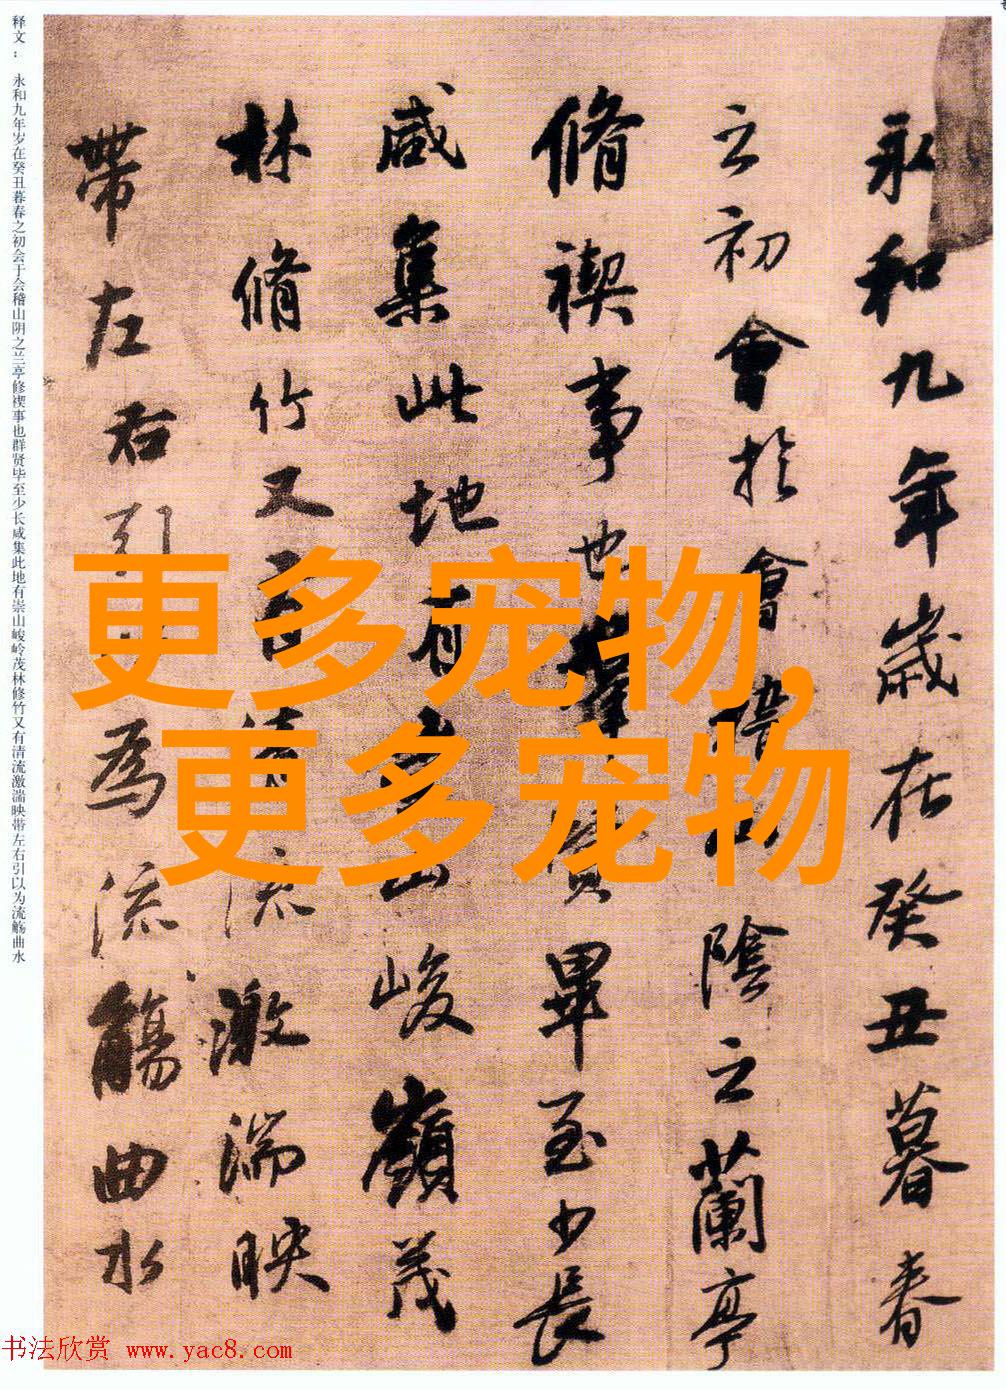 永和九年歲在癸丑暮春
之初會於會稽山陰之蘭亭
脩禊事也群賢畢至少長
咸集此地有崇山峻嶺茂
林脩竹又有清流激湍映
帶左右引為流觴曲水
释文：永和九年岁在癸丑暮春之初会于会稽山阴之兰亭修禊事也群贤毕至少长咸集此地有崇山峻岭茂林修竹又有清流激湍映带左右引以为流觞曲水
更多宠物,
更多宠物
书法欣赏 www.yac8.com